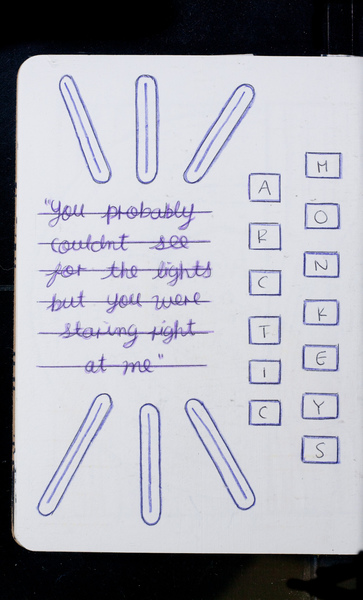 "You probably
couldnt see
for the lights
but you were
staring right
at me"
ARCTIC
MONKEYS